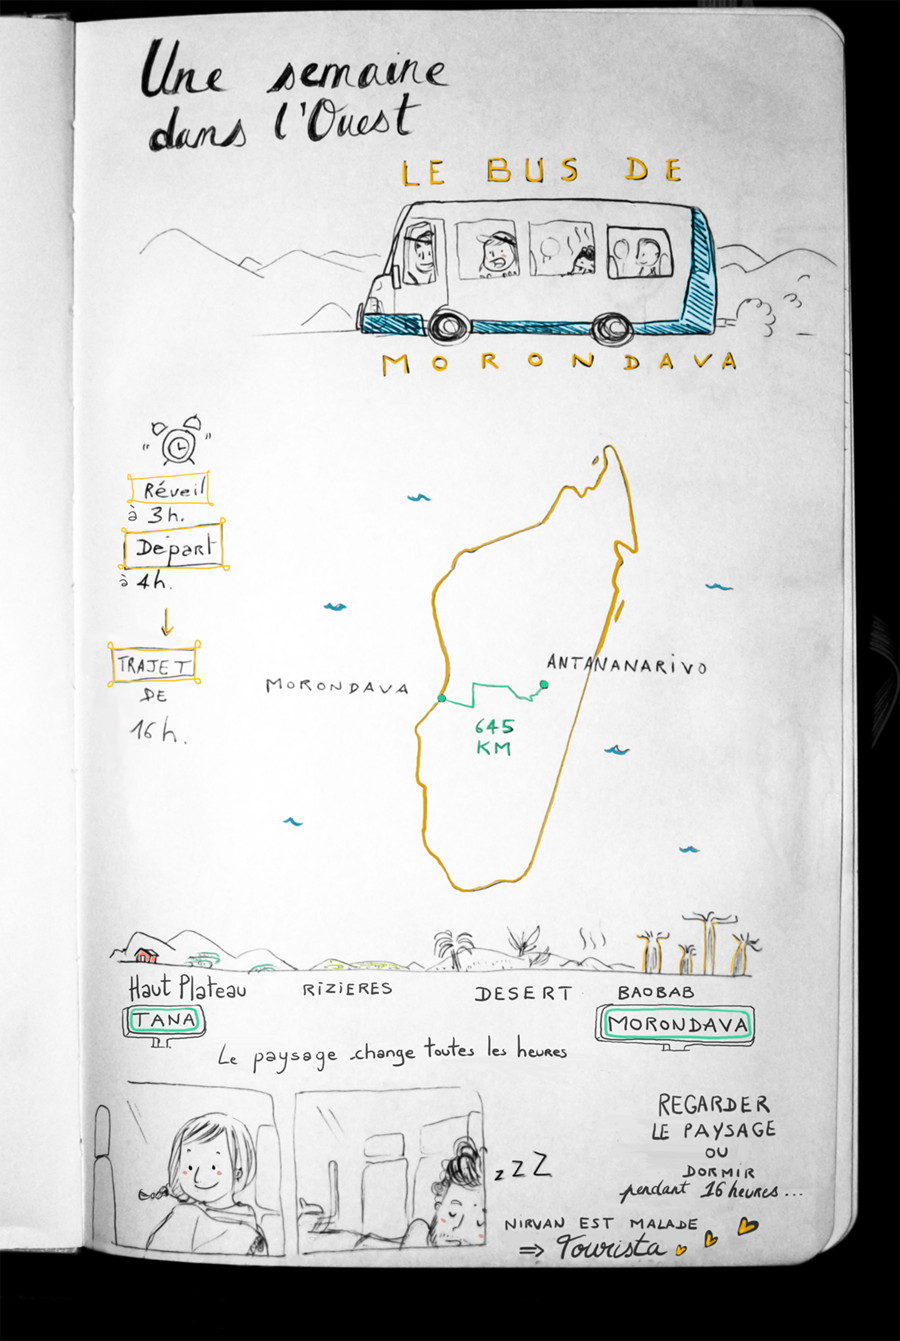 Une semaine
dans l'Ouest
LE BUS DE
MORONDAVA
Réveil
à 3h.
Départ
à 4h.
TRAJET
DE
16h.
ANTANANARIVO
MORONDAVA
645
KM
Haut Plateau
RIZIERES
DESERT
BAOBAB
TANA
MORONDAVA
Le paysage change toutes les heures
REGARDER
LE PAYSAGE
OU
DORMIR
pendant 16 heures...
zZZ
NIRVAN EST MALADE
⇒ Tourista